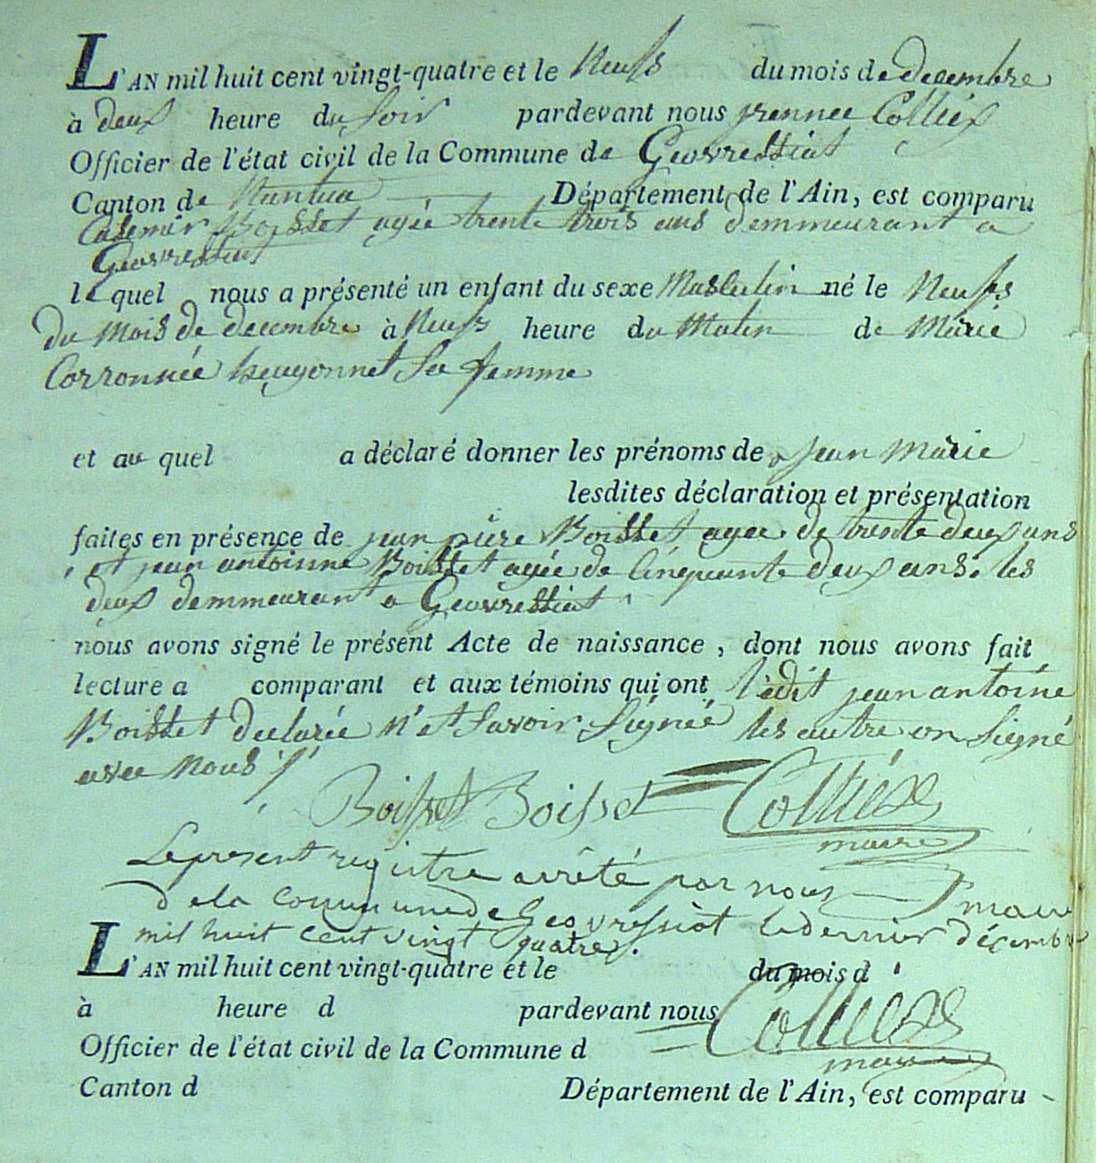 L'AN mil huit cent vingt-quatre et le Neufs du mois de decembre
à deux heure du soir pardevant nous Colliex
Officier de l'état civil de la Commune de Geovressiat
Canton de Nantua Département de l'Ain, est comparu
Casemir Boisset agée trente trois ans demmeurant a
Geovressiat
le quel nous a présenté un enfant du sexe Masculin né le Neufs
du mois de decembre à Neufs heure du Matin de Marie
Corronnée sa femme
et au quel a déclaré donner les prénoms de jean marie
lesdites déclaration et présentation
faites en présence de jean piere Boisset agee de trente deux ans
et jean antoinne Boisset agée de Cinquante deux ans. les
deux demmeurant a Geovressiat
nous avons signé le présent Acte de naissance, dont nous avons fait
lecture a comparant et aux témoins qui ont ledit jean antoine
Boisset declarée n'et savoir signée les autre on signé
avec nous
Boisset Boisset Colliex
maire
Le present registre arrêté par nous maire
de la commune de Geovressiat le dernier décembre
mil huit cent vingt quatre.
L'AN mil huit cent vingt-quatre et le du mois d
à heure d pardevant nous Colliex
Officier de l'état civil de la Commune d
maire
Canton d Département de l'Ain, est comparu